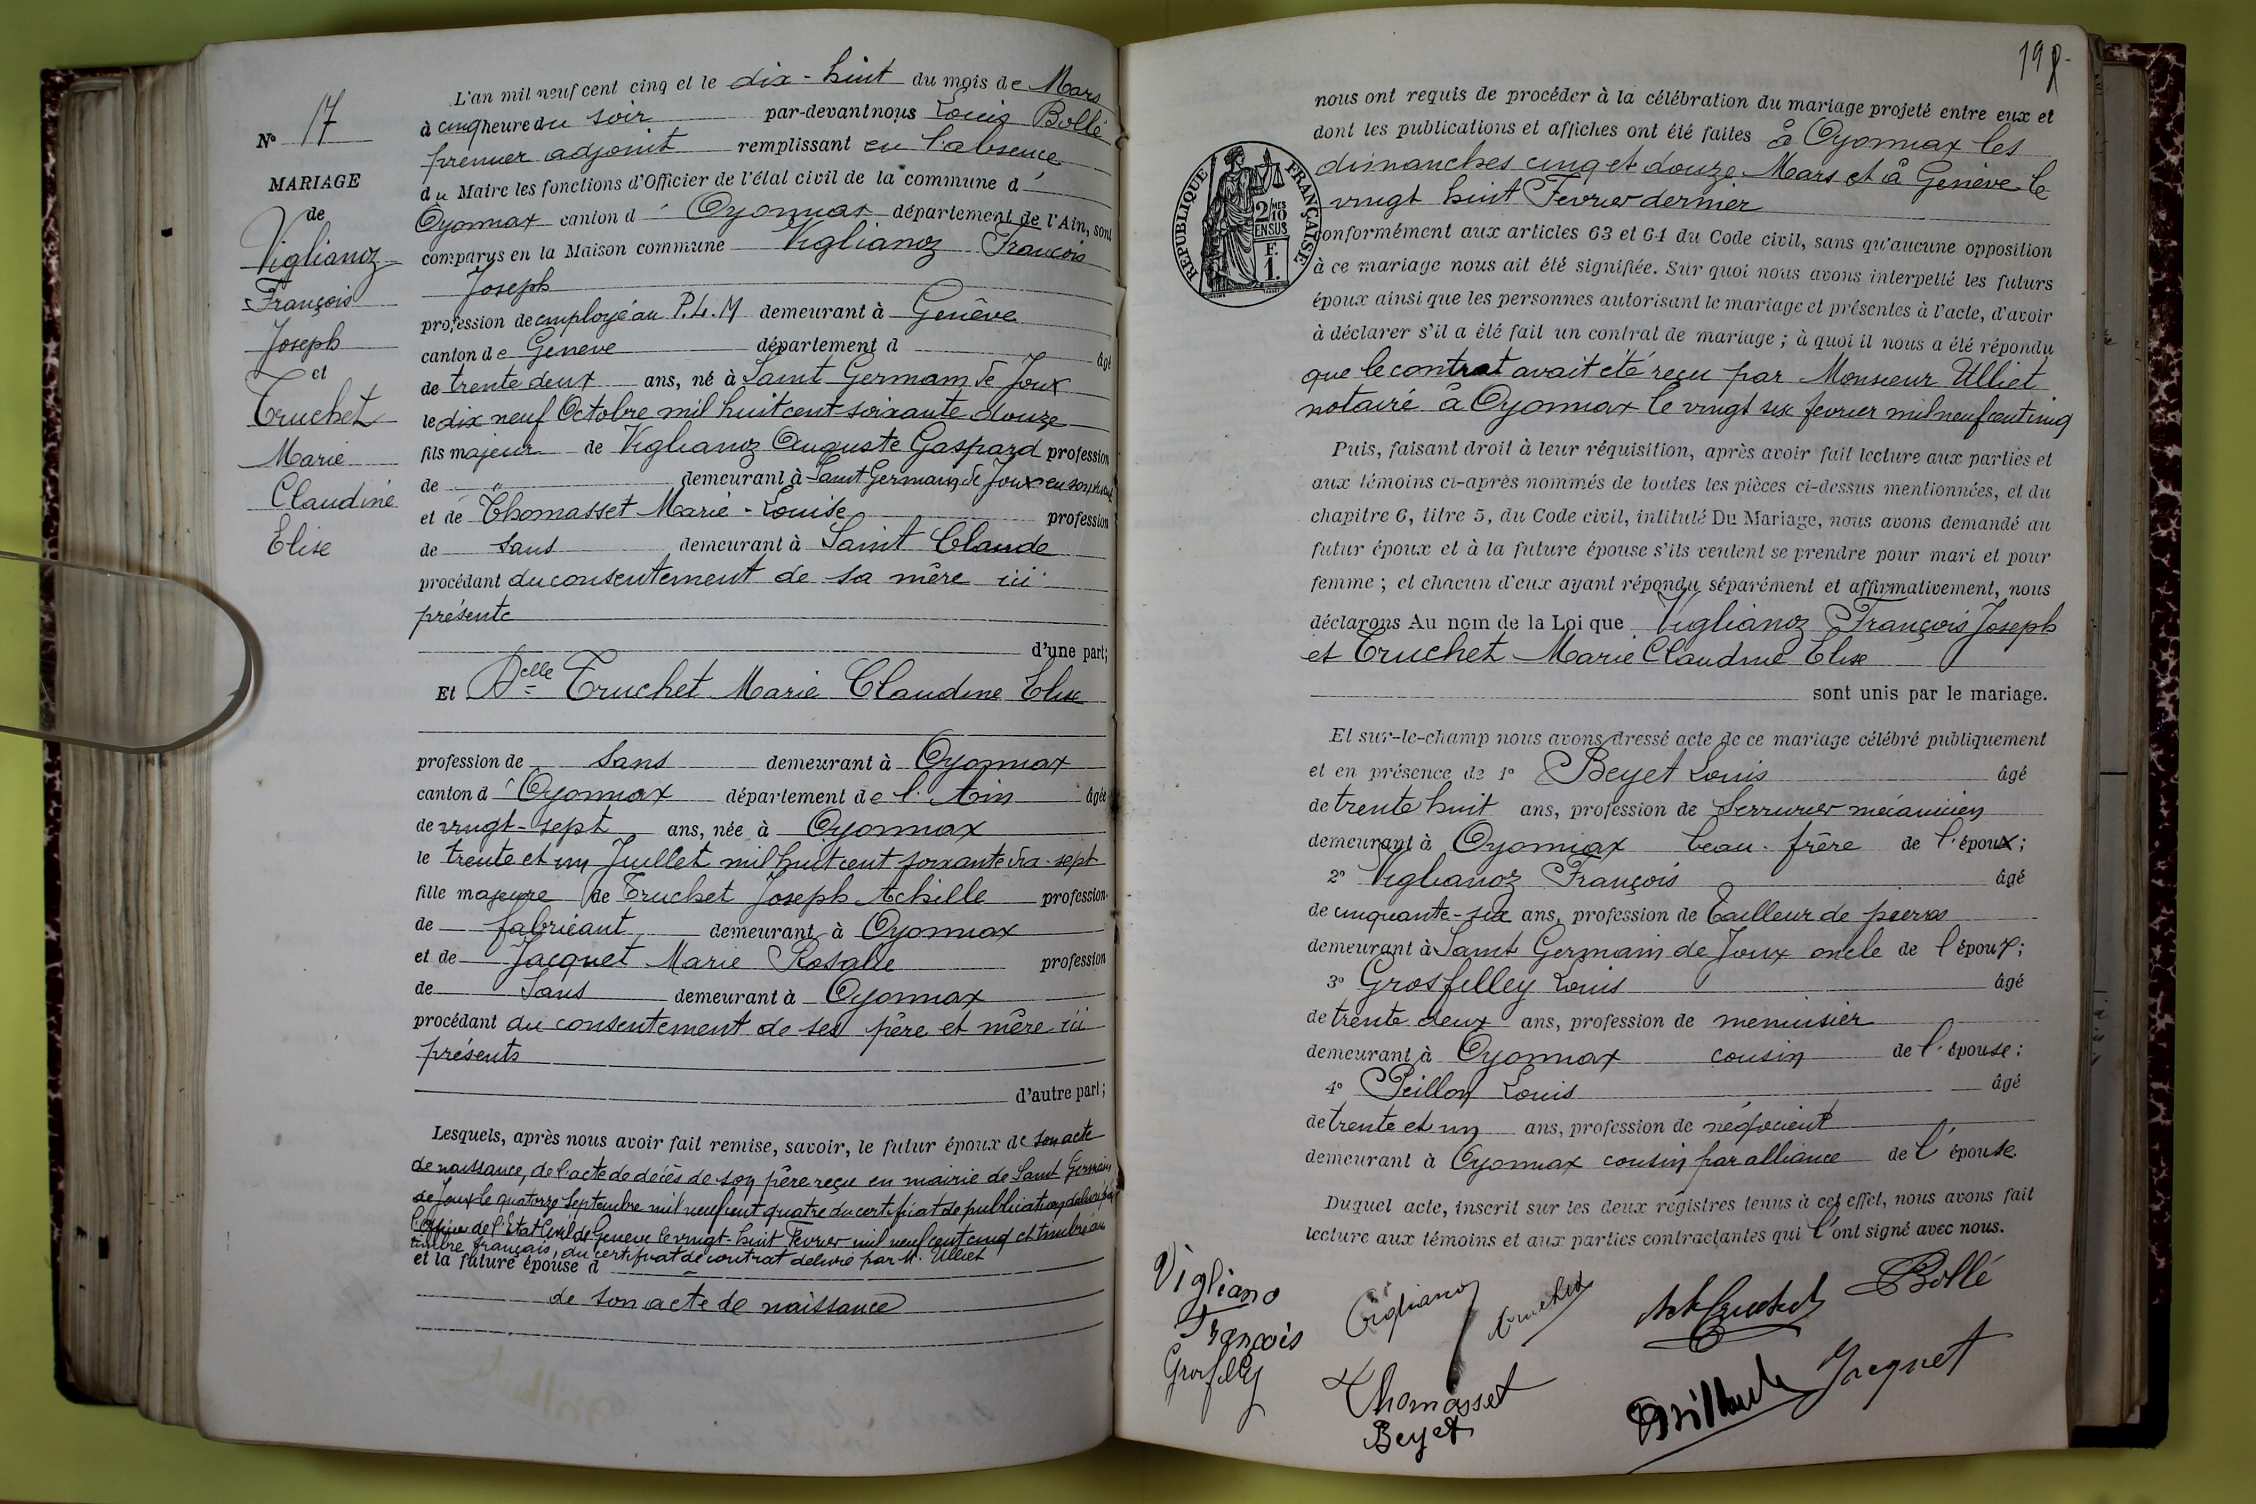 N° 17
MARIAGE
de
Viglianoz
François
Joseph
et
Truchet
Marie
Claudine
Elise
L'an mil neuf cent cinq et le dix-huit du mois de Mars
à cinq heure du soir par-devant nous Louis Bollé
premier adjoint remplissant en l'absence
du Maire les fonctions d'Officier de l'état civil de la commune d'
Oyonnax canton d'Oyonnax département de l'Ain, sont
comparus en la Maison commune Viglianoz François
Joseph
profession de employé au P.L.M demeurant à Genève
canton de Genève département d âgé
de trente deux ans, né à Saint Germain de Joux
le dix neuf Octobre mil huit cent soixante douze
fils majeur de Viglianoz Auguste Gaspard profession
de " demeurant à Saint Germain de Joux en son vivant
et de Thomasset Marie-Louise profession
de sans demeurant à Saint Claude
procédant du consentement de sa mère ici
présente
d'une part;
Et Delle Truchet Marie Claudine Elise
profession de sans demeurant à Oyonnax
canton d'Oyonnax département de l'Ain âgée
de vingt-sept ans, née à Oyonnax
le trente et un Juillet mil huit cent soixante dix-sept
fille majeure de Truchet Joseph Achille profession
de fabricant demeurant à Oyonnax
et de Jacquet Marie Rosalie profession
de Sans demeurant à Oyonnax
procédant du consentement de ses père et mère ici
présents
d'autre part;
Lesquels, après nous avoir fait remise, savoir, le futur époux de son acte
de naissance, de l'acte de décès de son père reçu en mairie de Saint Germain
de Joux le quatorze Septembre mil neuf cent quatre du certificat de publication délivré par
l'Officier de l'Etat Civil de Genève le vingt-huit Fevrier mil neuf cent cinq et timbré au
timbre français, du certificat de contrat délivré par M. Ulliet
et la future épouse d
de son acte de naissance
198
nous ont requis de procéder à la célébration du mariage projeté entre eux et
dont les publications et affiches ont été faites à Oyonnax les
dimanches cinq et douze Mars et à Genève le
vingt huit Fevrier dernier
conformément aux articles 63 et 64 du Code civil, sans qu'aucune opposition
à ce mariage nous ait été signifiée. Sur quoi nous avons interpellé les futurs
époux ainsi que les personnes autorisant le mariage et présentes à l'acte, d'avoir
à déclarer s'il a été fait un contrat de mariage; à quoi il nous a été répondu
que le contrat avait été reçu par Monsieur Ulliet
notaire à Oyonnax le vingt six fevrier mil neuf cent cinq
RÉPUBLIQUE FRANÇAISE
2/10 MES
EN SUS
F.
1.
Puis, faisant droit à leur réquisition, après avoir fait lecture aux parties et
aux témoins ci-après nommés de toutes les pièces ci-dessus mentionnées, et du
chapitre 6, titre 5, du Code civil, intitulé Du Mariage, nous avons demandé au
futur époux et à la future épouse s'ils veulent se prendre pour mari et pour
femme; et chacun d'eux ayant répondu séparément et affirmativement, nous
déclarons Au nom de la Loi que Viglianoz François Joseph
et Truchet Marie Claudine Elise
sont unis par le mariage.
Et sur-le-champ nous avons dressé acte de ce mariage célébré publiquement
et en présence de 1° Beyet Louis âgé
de trente huit ans, profession de Serrurier mécanicien
demeurant à Oyonnax beau-frère de l'époux;
2° Viglianoz François âgé
de cinquante-six ans, profession de Tailleur de pierres
demeurant à Saint Germain de Joux oncle de l'époux;
3° Grosfilley Louis âgé
de trente deux ans, profession de menuisier
demeurant à Oyonnax cousin de l'épouse;
4° Peillon Louis âgé
de trente et un ans, profession de négociant
demeurant à Oyonnax cousin par alliance de l'épouse
Duquel acte, inscrit sur les deux régistres tenus à cet effet, nous avons fait
lecture aux témoins et aux parties contractantes qui l'ont signé avec nous.
Vigliano
François
Viglianoz
Truchet
Ach Truchet
Bollé
Grosfilley
Thomasset
Beyet
Jacquet